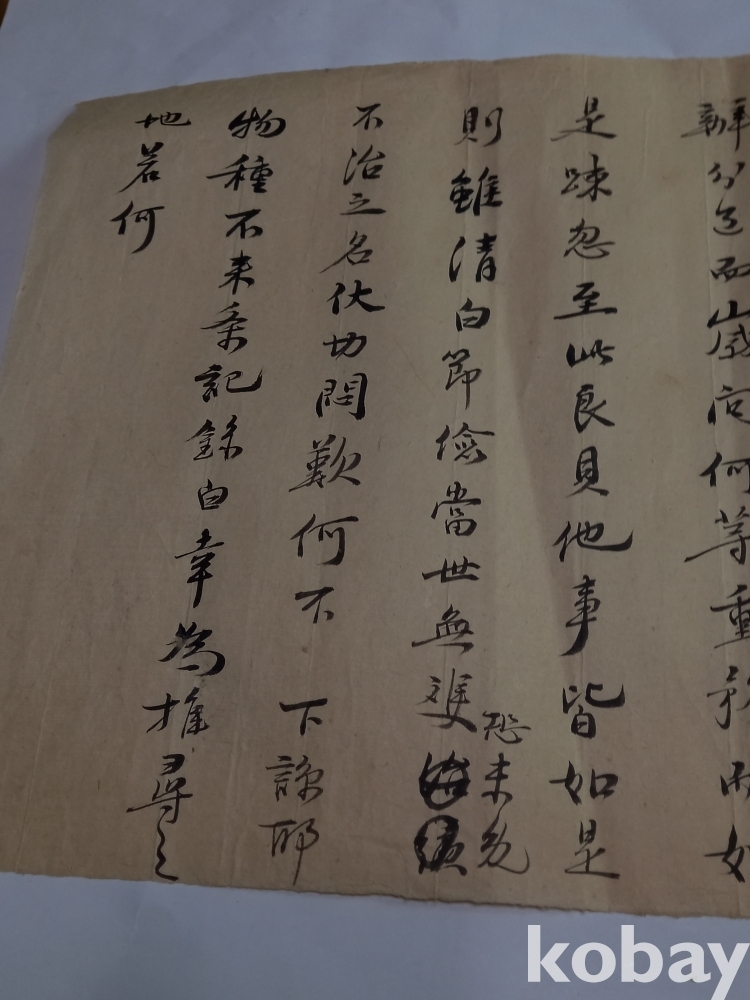 辦分還而山感何等重

是疎忽至此良貝他事皆如是
則雖清白節儉當世無雙恐未免
不治之名伏切悶歎何不 下諒耶
物種不來条記錄白幸為推尋之
地若何
kobay